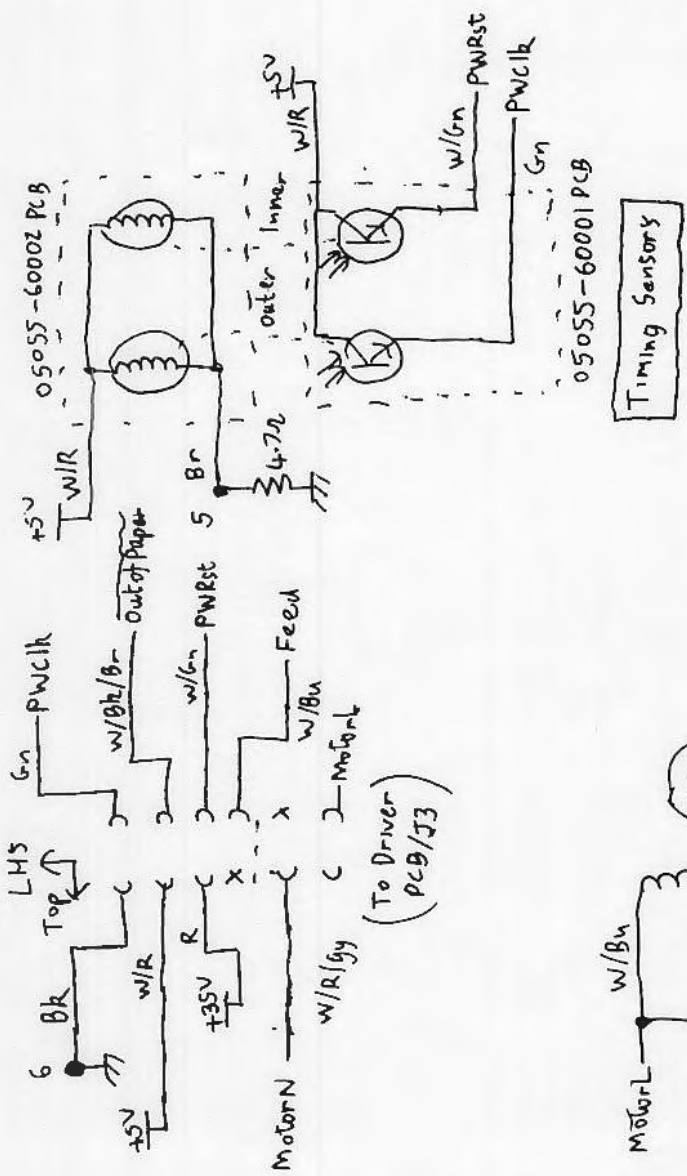 LHS
Top
6
Bk
+5V
W/R
R
+35V
MotorN
W/R/Gy
(To Driver
PCB/J3)
Gn
PWClk
W/Bk/Br
OutofPaper
W/Gn
PWRst
Feed
W/Bu
MotorL
+5V
W/R
05055-60002 PCB
5
Br
4.7Ω
Outer
Inner
+5V
W/R
W/Gn
PWRst
PWClk
Gn
05055-60001 PCB
Timing Sensors
MotorL
W/Bu